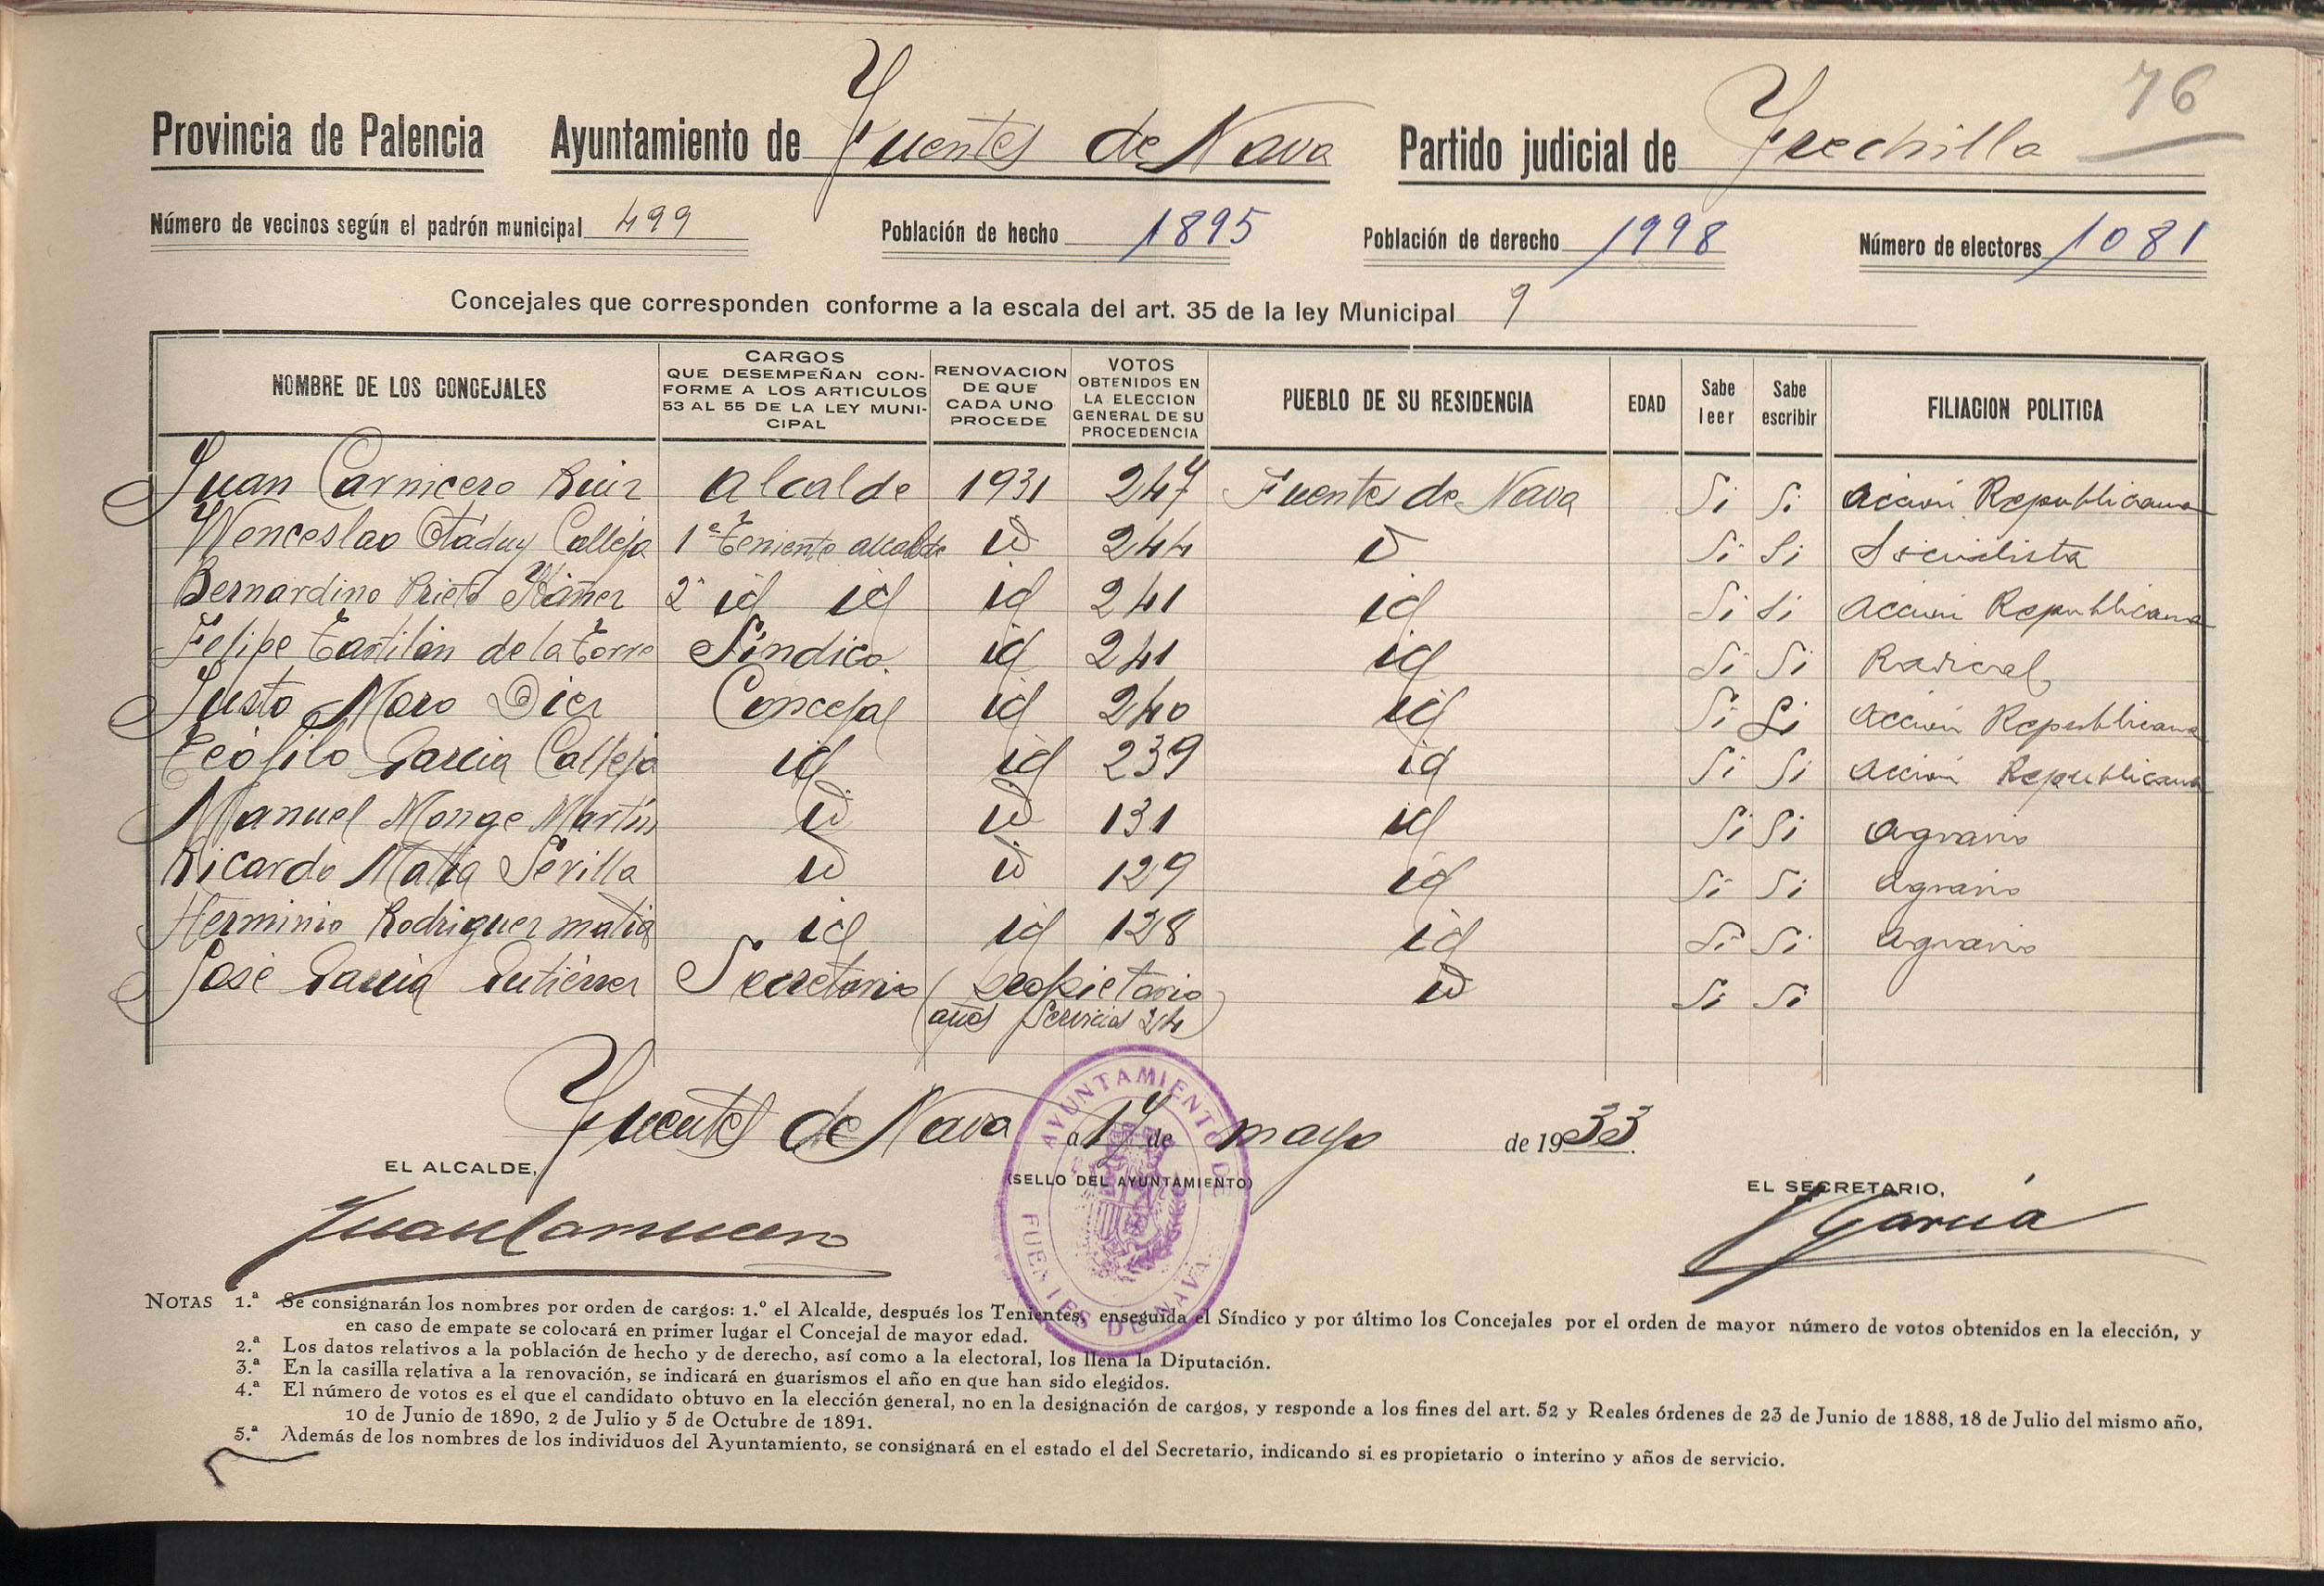 76
Provincia de Palencia Ayuntamiento de Fuentes de Nava Partido judicial de Frechilla
Número de vecinos según el padrón municipal 499 Población de hecho 1895 Población de derecho 1998 Número de electores 1081
Concejales que corresponden conforme a la escala del art. 35 de la ley Municipal 9
NOMBRE DE LOS CONCEJALES CARGOS QUE DESEMPEÑAN CONFORME A LOS ARTICULOS 53 AL 55 DE LA LEY MUNICIPAL RENOVACION DE QUE CADA UNO PROCEDE VOTOS OBTENIDOS EN LA ELECCION GENERAL DE SU PROCEDENCIA PUEBLO DE SU RESIDENCIA EDAD Sabe leer Sabe escribir FILIACION POLITICA
Juan Carnicero Ruiz Alcalde 1931 247 Fuentes de Nava Si Si Acción Republicana
Wenceslao Otáduy Calleja 1er Teniente alcalde id 244 id Si Si Socialista
Bernardino Prieto 2º id id id 241 id Si Si Acción Republicana
Felipe Tartilán de la Torre Síndico id 241 id Si Si Radical
Justo Maro Diez Concejal id 240 id Si Si Acción Republicana
Teófilo García Calleja id id 239 id Si Si Acción Republicana
Manuel Monge Martín id id 131 id Si Si Agrario
Ricardo Matía Sevilla id id 129 id Si Si Agrario
Herminio Rodriguez matia id id 128 id Si Si Agrario
José García Gutiérrez Secretario (propietario id Si Si
años Servicios 24)
Fuentes de Nava a 17 de mayo de 1933.
EL ALCALDE, (SELLO DEL AYUNTAMIENTO) EL SECRETARIO,
AYUNTAMIENTO DE FUENTES DE NAVA
Juan Carnicero
J García
NOTAS 1.ª Se consignarán los nombres por orden de cargos: 1.º el Alcalde, después los Tenientes, enseguida el Síndico y por último los Concejales por el orden de mayor número de votos obtenidos en la elección, y
en caso de empate se colocará en primer lugar el Concejal de mayor edad.
2.ª Los datos relativos a la población de hecho y de derecho, así como a la electoral, los llena la Diputación.
3.ª En la casilla relativa a la renovación, se indicará en guarismos el año en que han sido elegidos.
4.ª El número de votos es el que el candidato obtuvo en la elección general, no en la designación de cargos, y responde a los fines del art. 52 y Reales órdenes de 23 de Junio de 1888, 18 de Julio del mismo año,
10 de Junio de 1890, 2 de Julio y 5 de Octubre de 1891.
5.ª Además de los nombres de los individuos del Ayuntamiento, se consignará en el estado el del Secretario, indicando si es propietario o interino y años de servicio.